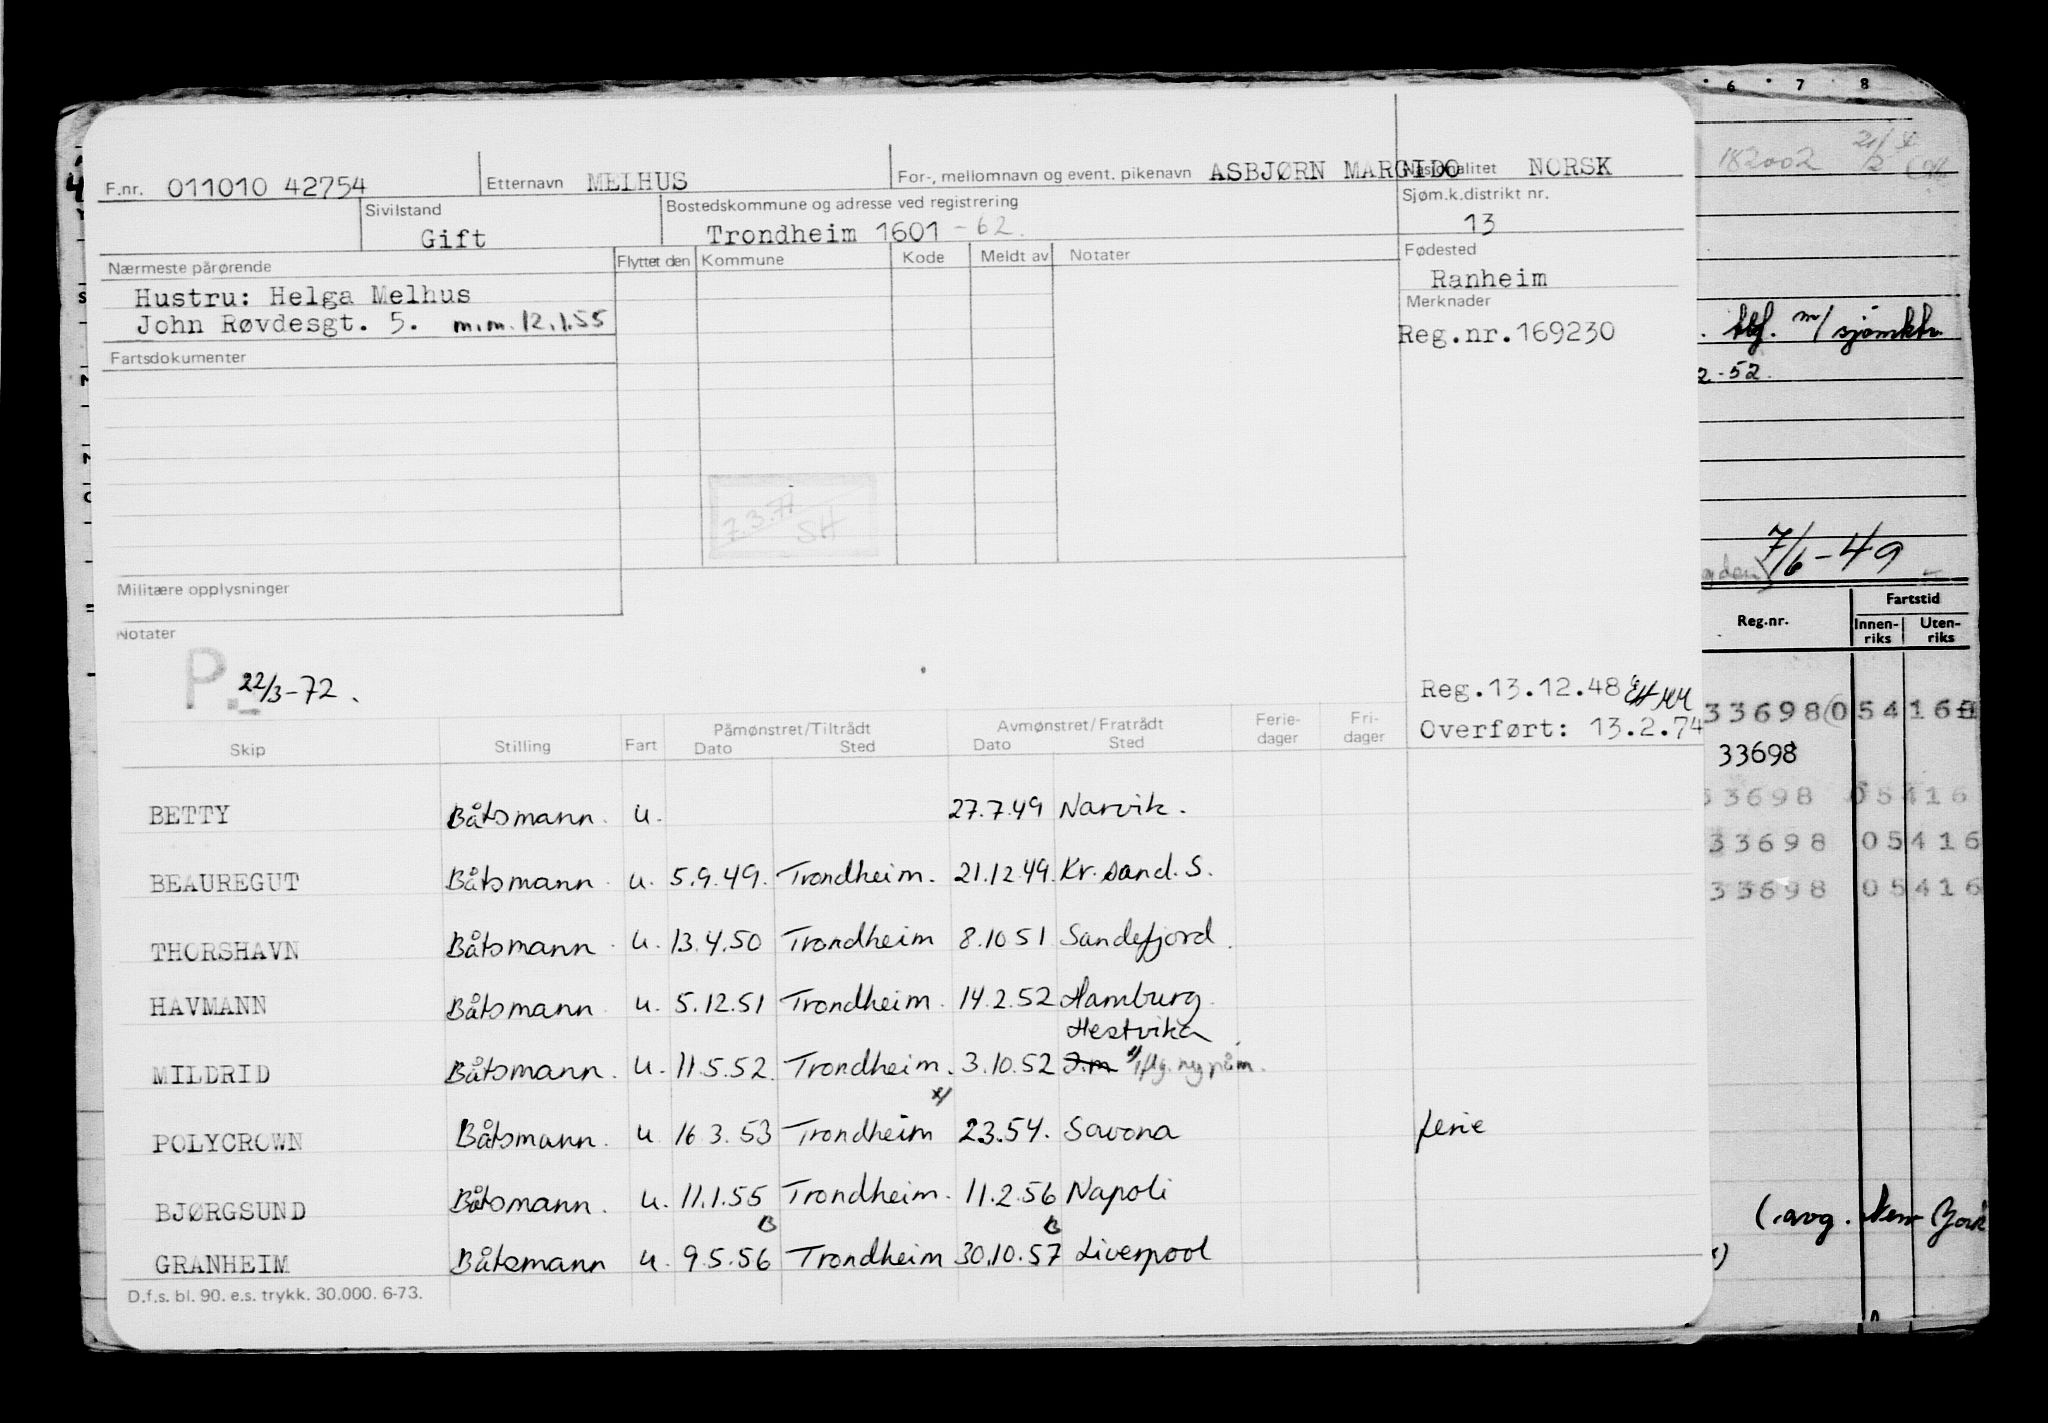 F.nr. 011010 42754 Etternavn MELHUS For-, mellomnavn og event. pikenavn ASBJØRN MARGIDO Nasjonalitet NORSK
Sivilstand Gift Bostedskommune og adresse ved registrering Trondheim 1601 -62. Sjøm.k.distrikt nr. 13
Nærmeste pårørende Flyttet den Kommune Kode Meldt av Notater Fødested Ranheim
Hustru: Helga Melhus
John Røvdesgt. 5. m.m. 12.1.55
Merknader
Reg.nr.169230
Fartsdokumenter
7.3.77
SH
Militære opplysninger
Notater
P. 22/3-72.
Reg.13.12.48
Overført: 13.2.74
Skip Stilling Fart Påmønstret/Tiltrådt Dato Sted Avmønstret/Fratrådt Dato Sted Ferie-dager Fri-dager
BETTY Båtsmann. u. 27.7.49 Narvik.
BEAUREGUT Båtsmann. u. 5.9.49. Trondheim. 21.12.49. Kr. sand. S.
THORSHAVN Båtsmann. u. 13.4.50 Trondheim 8.10 51 Sandefjord.
HAVMANN Båtsmann. u. 5.12.51 Trondheim. 14.2.52 Hamburg.
Hestvika
MILDRID Båtsmann. u. 11.5.52. Trondheim. 3.10.52
x/
POLYCROWN Båtsmann. u 16 3. 53 Trondheim 23.54. Savona ferie
BJØRGSUND Båtsmann. u. 11.1.55 Trondheim. 11.2.56 Napoli
B B
GRANHEIM Båtsmann u. 9.5.56 Trondheim 30.10.57 Liverpool
D.f.s. bl. 90. e.s. trykk. 30.000. 6-73.
6 7 8
182002
m/ sjømktr.
2-52.
7/6-49
Reg.nr. Fartstid
Innen-riks Uten-riks
33698 05416
33698
33698 05416
33698 05416
33698 05416
(.avg. New York